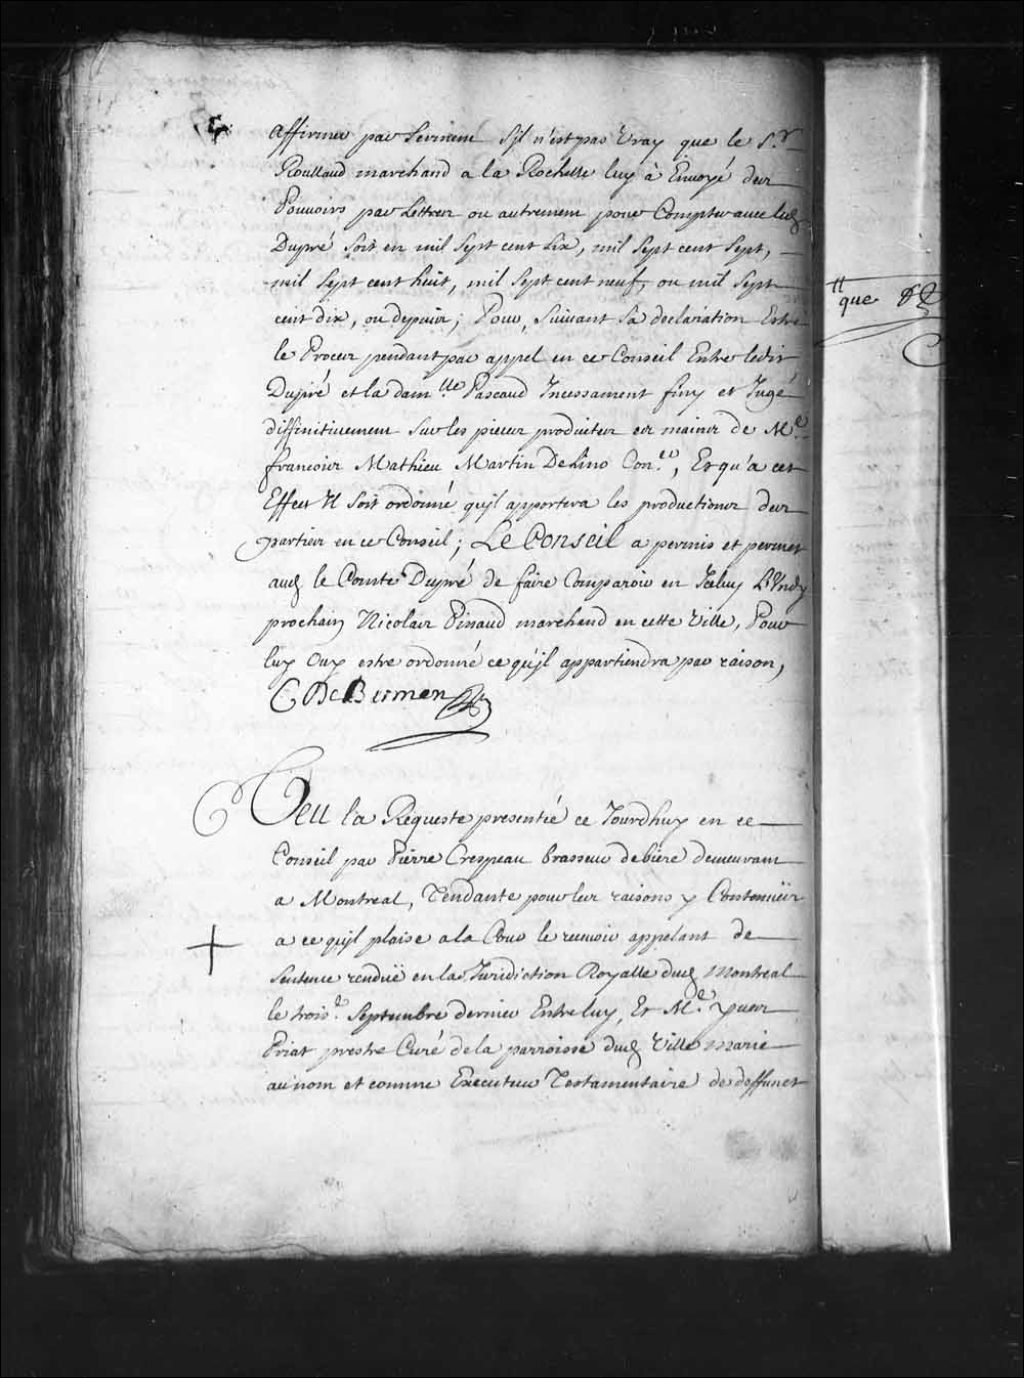 affirmer par serment s'jl n'est pas Vray que le S.r
Roullaud marchand a la Rochelle luy à Envoyé des
Pouvoirs par Lettres ou autrement pour Compter avec led
Dupré soit en mil sept cent six, mil sept cent sept,
mil sept cent huit, mil sept cent neuf, ou mil sept
cent dix, ou depuis; Pour, suivant sa declaration Estre
le Procez pendant par appel en ce Conseil Entre ledit
Dupré et la dam.lle Pascaud Incessament finy et Jugé
diffinitivement sur les pieces produites es mains de M.e
françois Mathieu Martin Delino Con.er, Et qu'a cet
Effect Il soit ordonné qu'jl apportera les productions des
parties en ce Conseil; Le Conseil a permis et permet
aud le Comte Dupré de faire Comparoir en Jceluy LVndy
prochain Nicolas Pinaud marchand en cette Ville, Pour
luy Ouy estre ordonné ce qu'jl appartiendra par raison,
C DeBermen
que
Veu la Requeste presentée ce Jourdhuy en ce
Conseil par Pierre Crespeau brasseur de biere demeurant
a Montreal, Tendante pour les raisons y Contenuës
a ce qu'jl plaise a la Cour le recevoir appelant de
sentence renduë en la Jurisdiction Royalle dud Montreal
le trois.e Septembre dernier Entre luy, Et M.e yves
Priat prestre Curé de la parroisse dud Ville Marie
au nom et comme Executeur Testamentaire de deffunct